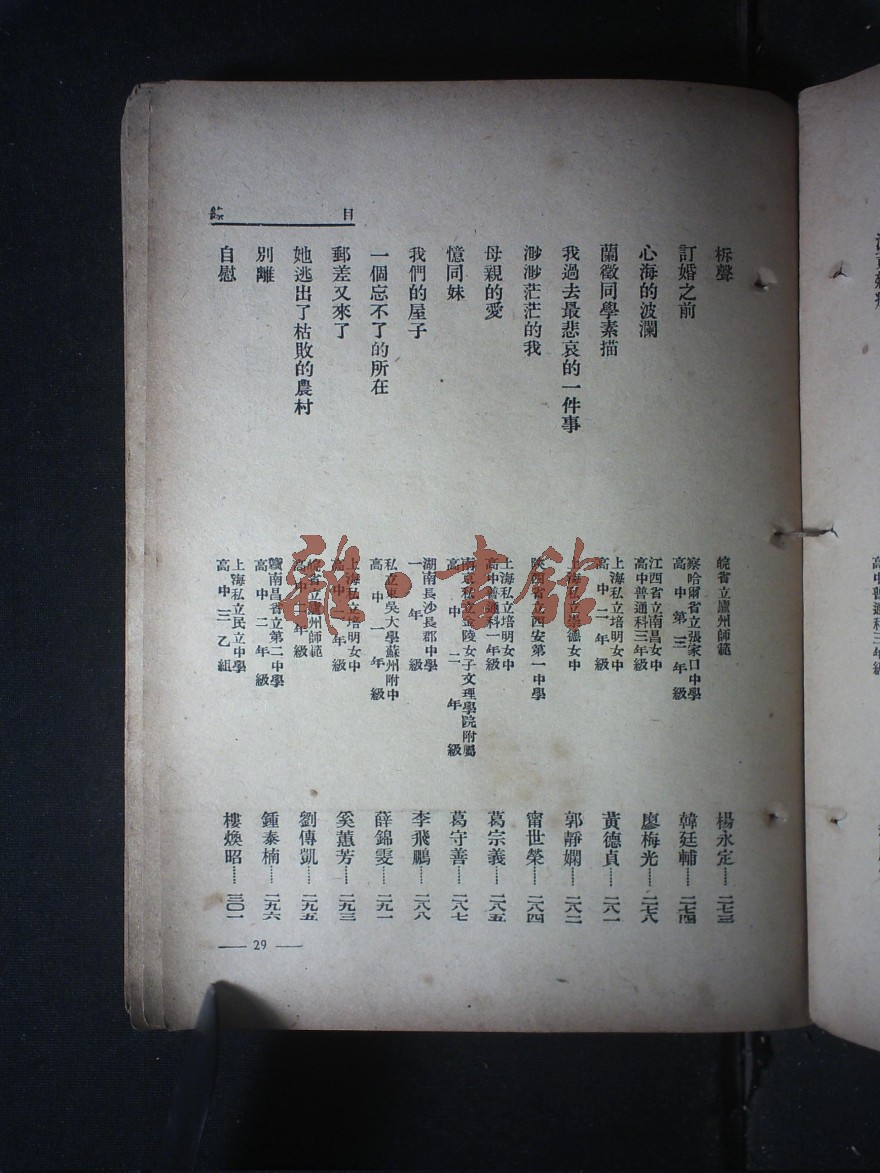 目錄
柝聲 皖省立廬州師範 楊永定…… 二七三
訂婚之前 察哈爾省立張家口中學高中第三年級 韓廷輔…… 二七四
心海的波瀾 江西省立南昌女中高中普通科三年級 廖梅光…… 二七八
蘭徵同學素描 上海私立培明女中高中二年級 黃德貞…… 二八一
我過去最悲哀的一件事 上海私立崇德女中 郭靜嫻…… 二八二
渺渺茫茫的我 陝西省立西安第一中學 甯世榮…… 二八四
母親的愛 上海私立培明女中高中普通科一年級 葛宗義…… 二八五
憶同妹 南京私立金陵女子文理學院附屬高中二年級 葛守善…… 二八七
我們的屋子 湖南長沙長郡中學一年級 李飛鵬…… 二八八
一個忘不了的所在 私立東吳大學蘇州附中高中一年級 薛錦雯…… 二九一
郵差又來了 上海私立培明女中高中一年級 奚蕙芳…… 二九三
她逃出了枯敗的農村 皖省立廬州師範高中二年級 劉傳凱…… 二九五
別離 贛南昌省立第二中學高中二年級 鍾泰楠…… 二九六
自慰 上海私立民立中學高中三乙組 樓煥昭…… 三〇一
— 29 —
雜·書館
高中普通科三年級